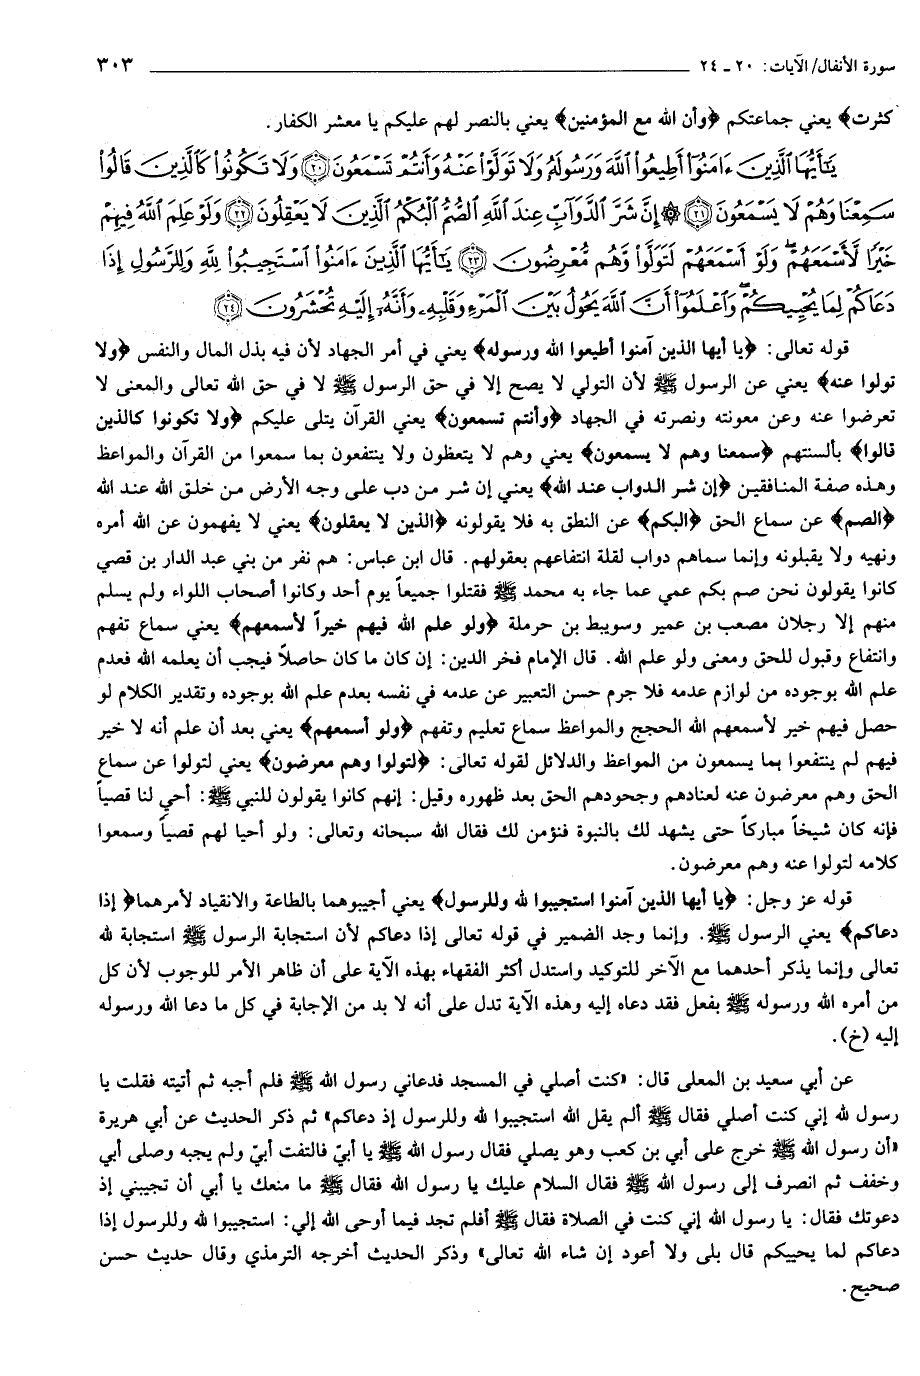 سورة الأنفال/ الآيات: ٢٠ ـ ٢٤ ٣٠٣
كثرت﴾ يعني جماعتكم ﴿وأن الله مع المؤمنين﴾ يعني بالنصر لهم عليكم يا معشر الكفار.
يَٰٓأَيُّهَا ٱلَّذِينَ ءَامَنُوٓا۟ أَطِيعُوا۟ ٱللَّهَ وَرَسُولَهُۥ وَلَا تَوَلَّوْا۟ عَنْهُ وَأَنتُمْ تَسْمَعُونَ ﴿٢٠﴾ وَلَا تَكُونُوا۟ كَٱلَّذِينَ قَالُوا۟
سَمِعْنَا وَهُمْ لَا يَسْمَعُونَ ﴿٢١﴾ ۞ إِنَّ شَرَّ ٱلدَّوَآبِّ عِندَ ٱللَّهِ ٱلصُّمُّ ٱلْبُكْمُ ٱلَّذِينَ لَا يَعْقِلُونَ ﴿٢٢﴾ وَلَوْ عَلِمَ ٱللَّهُ فِيهِمْ
خَيْرًا لَّأَسْمَعَهُمْ ۖ وَلَوْ أَسْمَعَهُمْ لَتَوَلَّوا۟ وَّهُم مُّعْرِضُونَ ﴿٢٣﴾ يَٰٓأَيُّهَا ٱلَّذِينَ ءَامَنُوا۟ ٱسْتَجِيبُوا۟ لِلَّهِ وَلِلرَّسُولِ إِذَا
دَعَاكُمْ لِمَا يُحْيِيكُمْ ۖ وَٱعْلَمُوٓا۟ أَنَّ ٱللَّهَ يَحُولُ بَيْنَ ٱلْمَرْءِ وَقَلْبِهِۦ وَأَنَّهُۥٓ إِلَيْهِ تُحْشَرُونَ ﴿٢٤﴾
قوله تعالى: ﴿يا أيها الذين آمنوا أطيعوا الله ورسوله﴾ يعني في أمر الجهاد لأن فيه بذل المال والنفس ﴿ولا
تولوا عنه﴾ يعني عن الرسول ﷺ لأن التولي لا يصح إلا في حق الرسول ﷺ لا في حق الله تعالى والمعنى لا
تعرضوا عنه وعن معونته ونصرته في الجهاد ﴿وأنتم تسمعون﴾ يعني القرآن يتلى عليكم ﴿ولا تكونوا كالذين
قالوا﴾ بألسنتهم ﴿سمعنا وهم لا يسمعون﴾ يعني وهم لا يتعظون ولا ينتفعون بما سمعوا من القرآن والمواعظ
وهذه صفة المنافقين ﴿إن شر الدواب عند الله﴾ يعني إن شر من دب على وجه الأرض من خلق الله عند الله
﴿الصم﴾ عن سماع الحق ﴿البكم﴾ عن النطق به فلا يقولونه ﴿الذين لا يعقلون﴾ يعني لا يفهمون عن الله أمره
ونهيه ولا يقبلونه وإنما سماهم دواب لقلة انتفاعهم بعقولهم. قال ابن عباس: هم نفر من بني عبد الدار بن قصي
كانوا يقولون نحن صم بكم عمي عما جاء به محمد ﷺ فقتلوا جميعاً يوم أحد وكانوا أصحاب اللواء ولم يسلم
منهم إلا رجلان مصعب بن عمير وسويبط بن حرملة ﴿ولو علم الله فيهم خيراً لأسمعهم﴾ يعني سماع تفهم
وانتفاع وقبول للحق ومعنى ولو علم الله. قال الإمام فخر الدين: إن كان ما كان حاصلاً فيجب أن يعلمه الله فعدم
علم الله بوجوده من لوازم عدمه فلا جرم حسن التعبير عن عدمه في نفسه بعدم علم الله بوجوده وتقدير الكلام لو
حصل فيهم خير لأسمعهم الله الحجج والمواعظ سماع تعليم وتفهم ﴿ولو أسمعهم﴾ يعني بعد أن علم أنه لا خير
فيهم لم ينتفعوا بما يسمعون من المواعظ والدلائل لقوله تعالى: ﴿لتولوا وهم معرضون﴾ يعني لتولوا عن سماع
الحق وهم معرضون عنه لعنادهم وجحودهم الحق بعد ظهوره وقيل: إنهم كانوا يقولون للنبي ﷺ: أحي لنا قصياً
فإنه كان شيخاً مباركاً حتى يشهد لك بالنبوة فنؤمن لك فقال الله سبحانه وتعالى: ولو أحيا لهم قصياً وسمعوا
كلامه لتولوا عنه وهم معرضون.
قوله عز وجل: ﴿يا أيها الذين آمنوا استجيبوا لله وللرسول﴾ يعني أجيبوهما بالطاعة والانقياد لأمرهما﴿ إذا
دعاكم﴾ يعني الرسول ﷺ. وإنما وجد الضمير في قوله تعالى إذا دعاكم لأن استجابة الرسول ﷺ استجابة لله
تعالى وإنما يذكر أحدهما مع الآخر للتوكيد واستدل أكثر الفقهاء بهذه الآية على أن ظاهر الأمر للوجوب لأن كل
من أمره الله ورسوله ﷺ بفعل فقد دعاه إليه وهذه الآية تدل على أنه لا بد من الإجابة في كل ما دعا الله ورسوله
إليه (خ).
عن أبي سعيد بن المعلى قال: «كنت أصلي في المسجد فدعاني رسول الله ﷺ فلم أجبه ثم أتيته فقلت يا
رسول لله إني كنت أصلي فقال ﷺ ألم يقل الله استجيبوا لله وللرسول إذ دعاكم» ثم ذكر الحديث عن أبي هريرة
«أن رسول الله ﷺ خرج على أبي بن كعب وهو يصلي فقال رسول الله ﷺ يا أبيّ فالتفت أبيّ ولم يجبه وصلى أبي
وخفف ثم انصرف إلى رسول الله ﷺ فقال السلام عليك يا رسول الله فقال ﷺ ما منعك يا أبي أن تجيبني إذ
دعوتك فقال: يا رسول الله إني كنت في الصلاة فقال ﷺ أفلم تجد فيما أوحى الله إلي: استجيبوا لله وللرسول إذا
دعاكم لما يحييكم قال بلى ولا أعود إن شاء الله تعالى» وذكر الحديث أخرجه الترمذي وقال حديث حسن
صحيح.